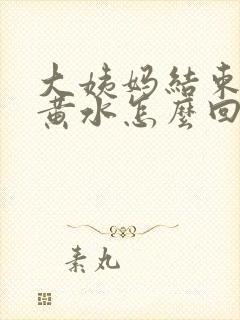 大姨妈結束
黄水怎麼回
素丸